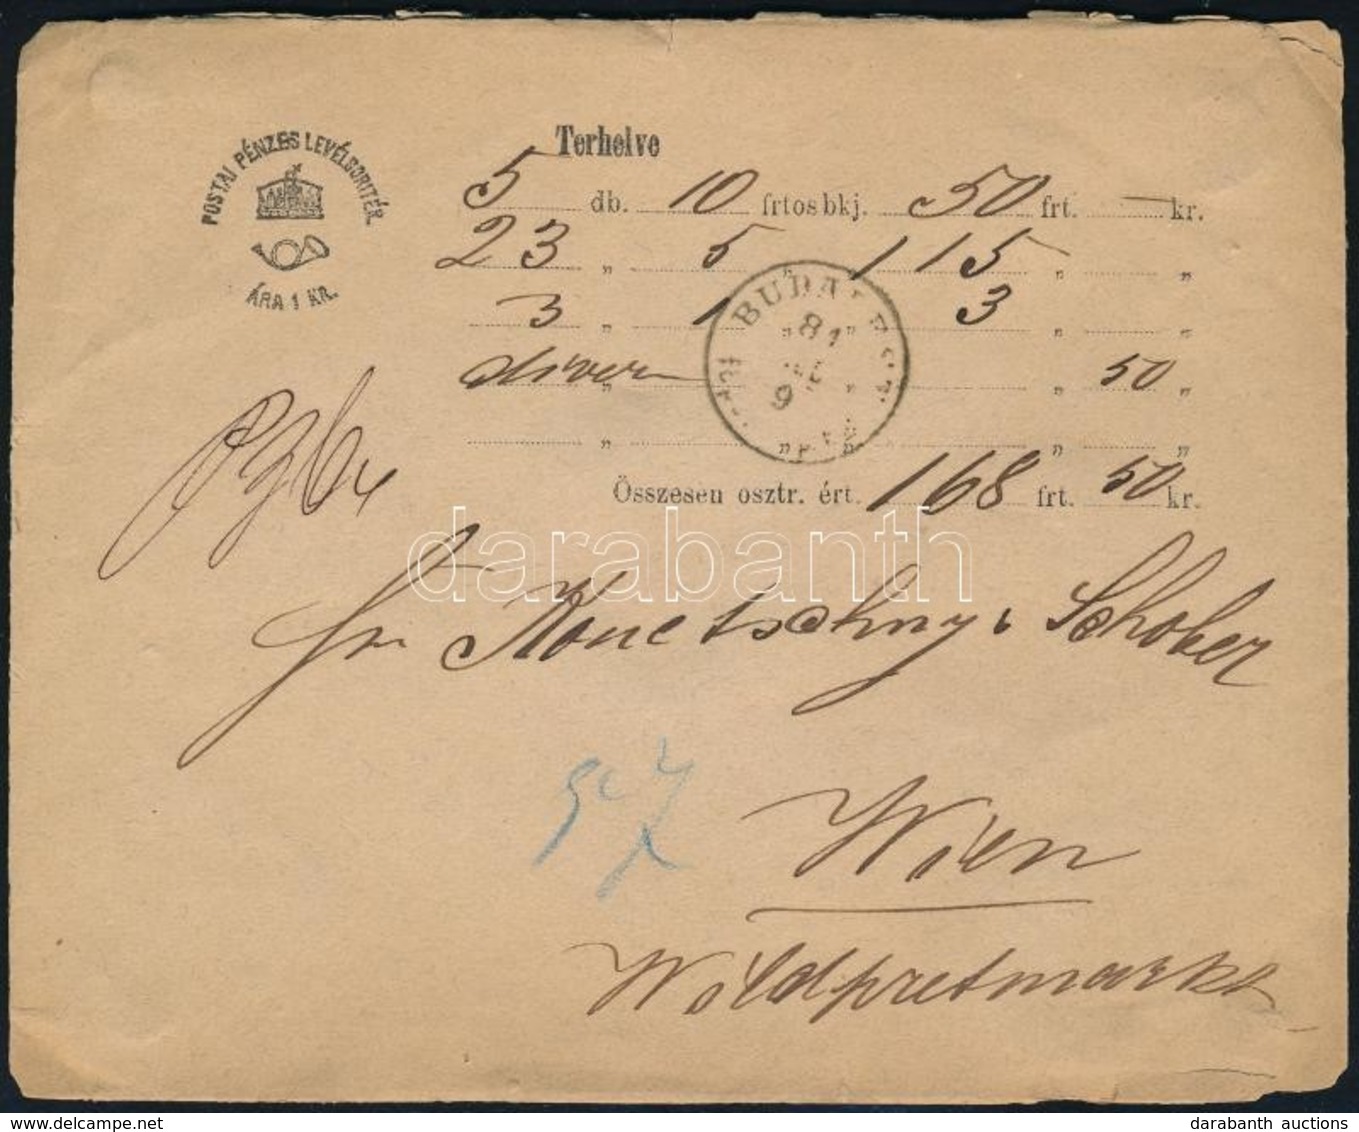 POSTAI PÉNZES LEVÉLBORITÉK.
ÁRA 1 KR.
Terhelve
5 db. 10 frtosbkj. 50 frt. — kr.
23 „ 5 „ 115 „ „
3 „ 1 „ „ 3 „ „
diverse „ „ „ 50 „
„ „ „ „ „
BUDAPEST
81
9
Összesen osztr. ért. 168 frt. 50 kr.
darabanth
Konetschny & Schober
Wien
Wildpretmarkt
delcampe.net
darabanth auctions